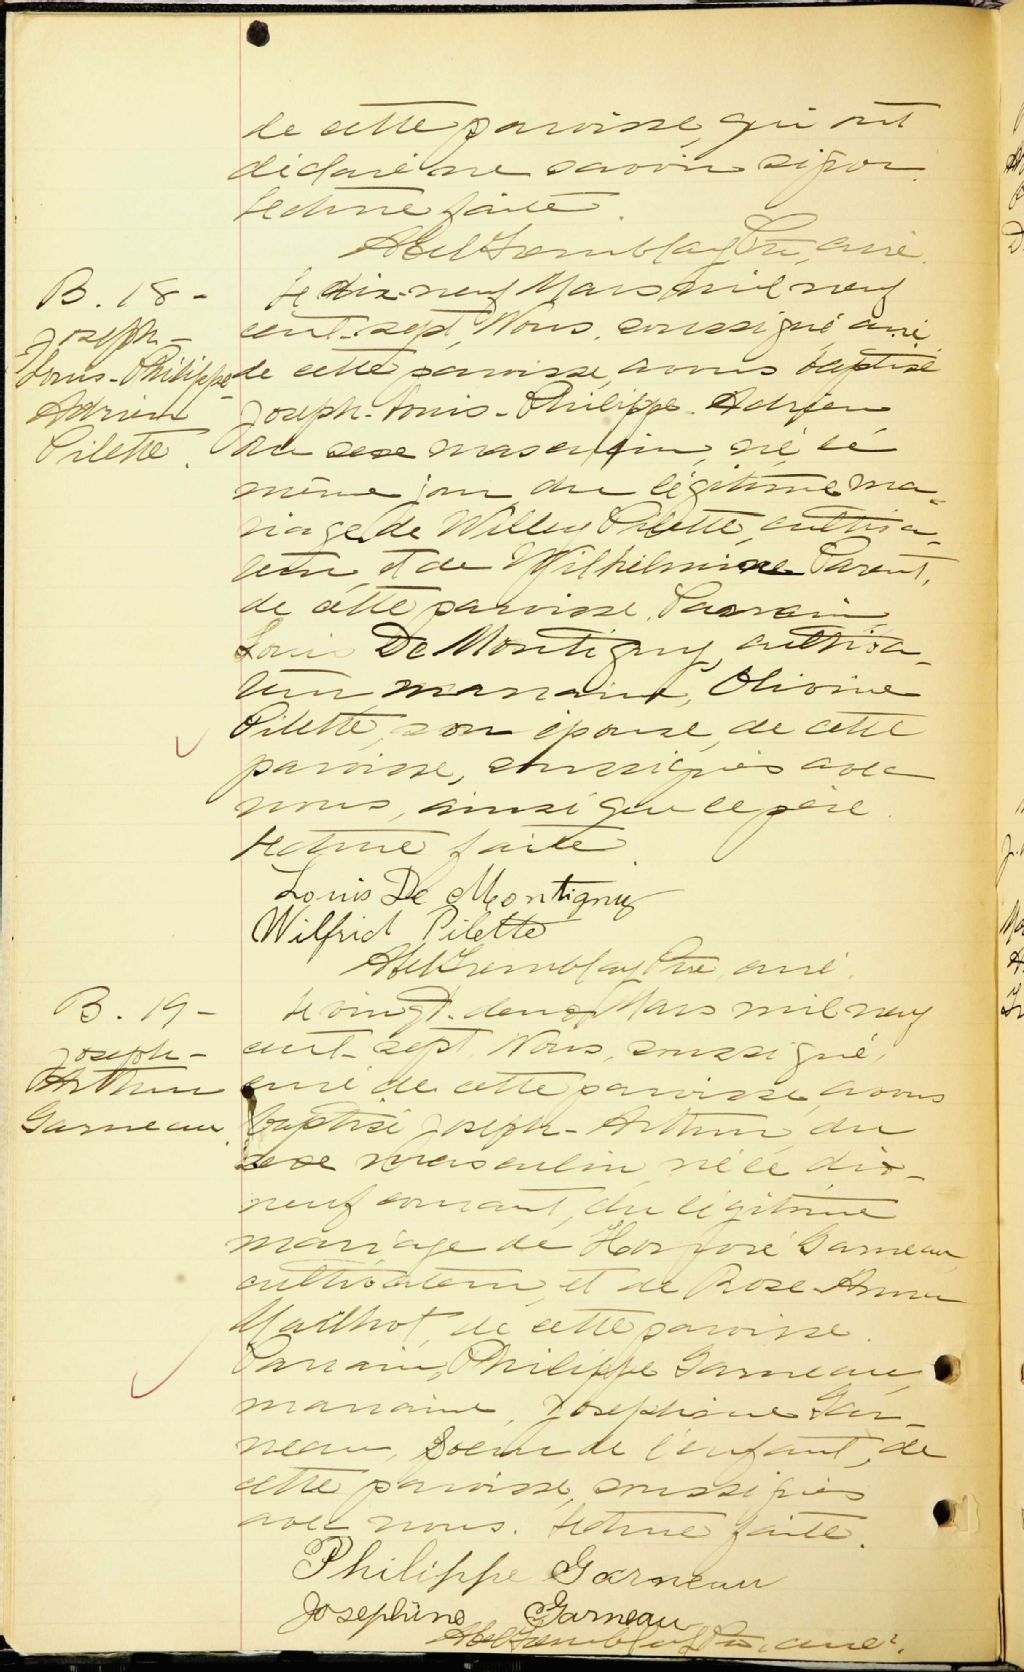 de cette paroisse, qui ont
déclaré ne savoir signer.
Lecture faite.
Abel Tremblay Ptre, curé.
B. 18 -
Joseph-
Louis-Philippe-
Adrien
Pilette.
Le dix-neuf Mars mil neuf
cent-sept, Nous, soussigné, curé
de cette paroisse, avons baptisé
Joseph-Louis-Philippe-Adrien
du sexe masculin, né ce
même jour, du légitime ma-
riage de Willey Pilette, cultiva-
teur, et de Wilhelmine Parent,
de cette paroisse. Parrain,
Louis De Montigny, cultiva-
teur, marraine, Olivine
Pilette, son épouse, de cette
paroisse, soussignés avec
nous, ainsi que le père.
Lecture faite.
Louis De Montigny
Wilfrid Pilette
Abel Tremblay Ptre, curé.
B. 19 -
Joseph-
Arthur
Garneau.
Le vingt-deux Mars mil neuf
cent-sept, Nous, soussigné,
curé de cette paroisse, avons
baptisé Joseph-Arthur, du
sexe masculin, né le dix-
neuf courant, du légitime
mariage de Garneau,
cultivateur, et de Rose-Anna
Mailhot, de cette paroisse.
Parrain, Philippe Garneau,
marraine, Josephine Gar-
neau, soeur de l'enfant, de
cette paroisse, soussignés
avec nous. Lecture faite.
Philippe Garneau
Josephine Garneau
Abel Tremblay Ptre, curé.